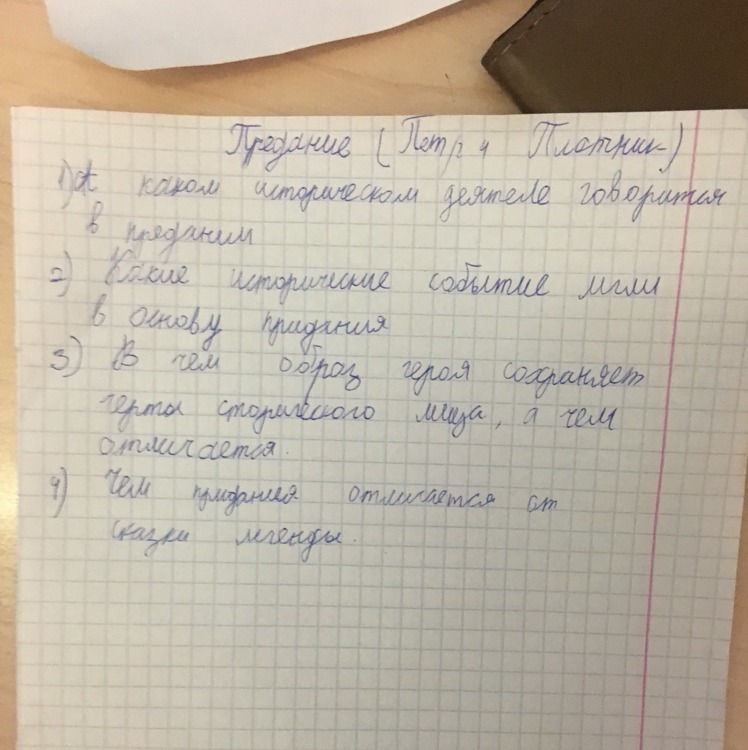 Предание (Петр и Плотник)
1) каком историческом деятеле говорится
в предании
2) Какие исторические событие мгли
в основу придания
3) В чем образ героя сохраняет
черты сторического лица, а чем
отличается.
4) Чем придания отличается от
сказки легенды.